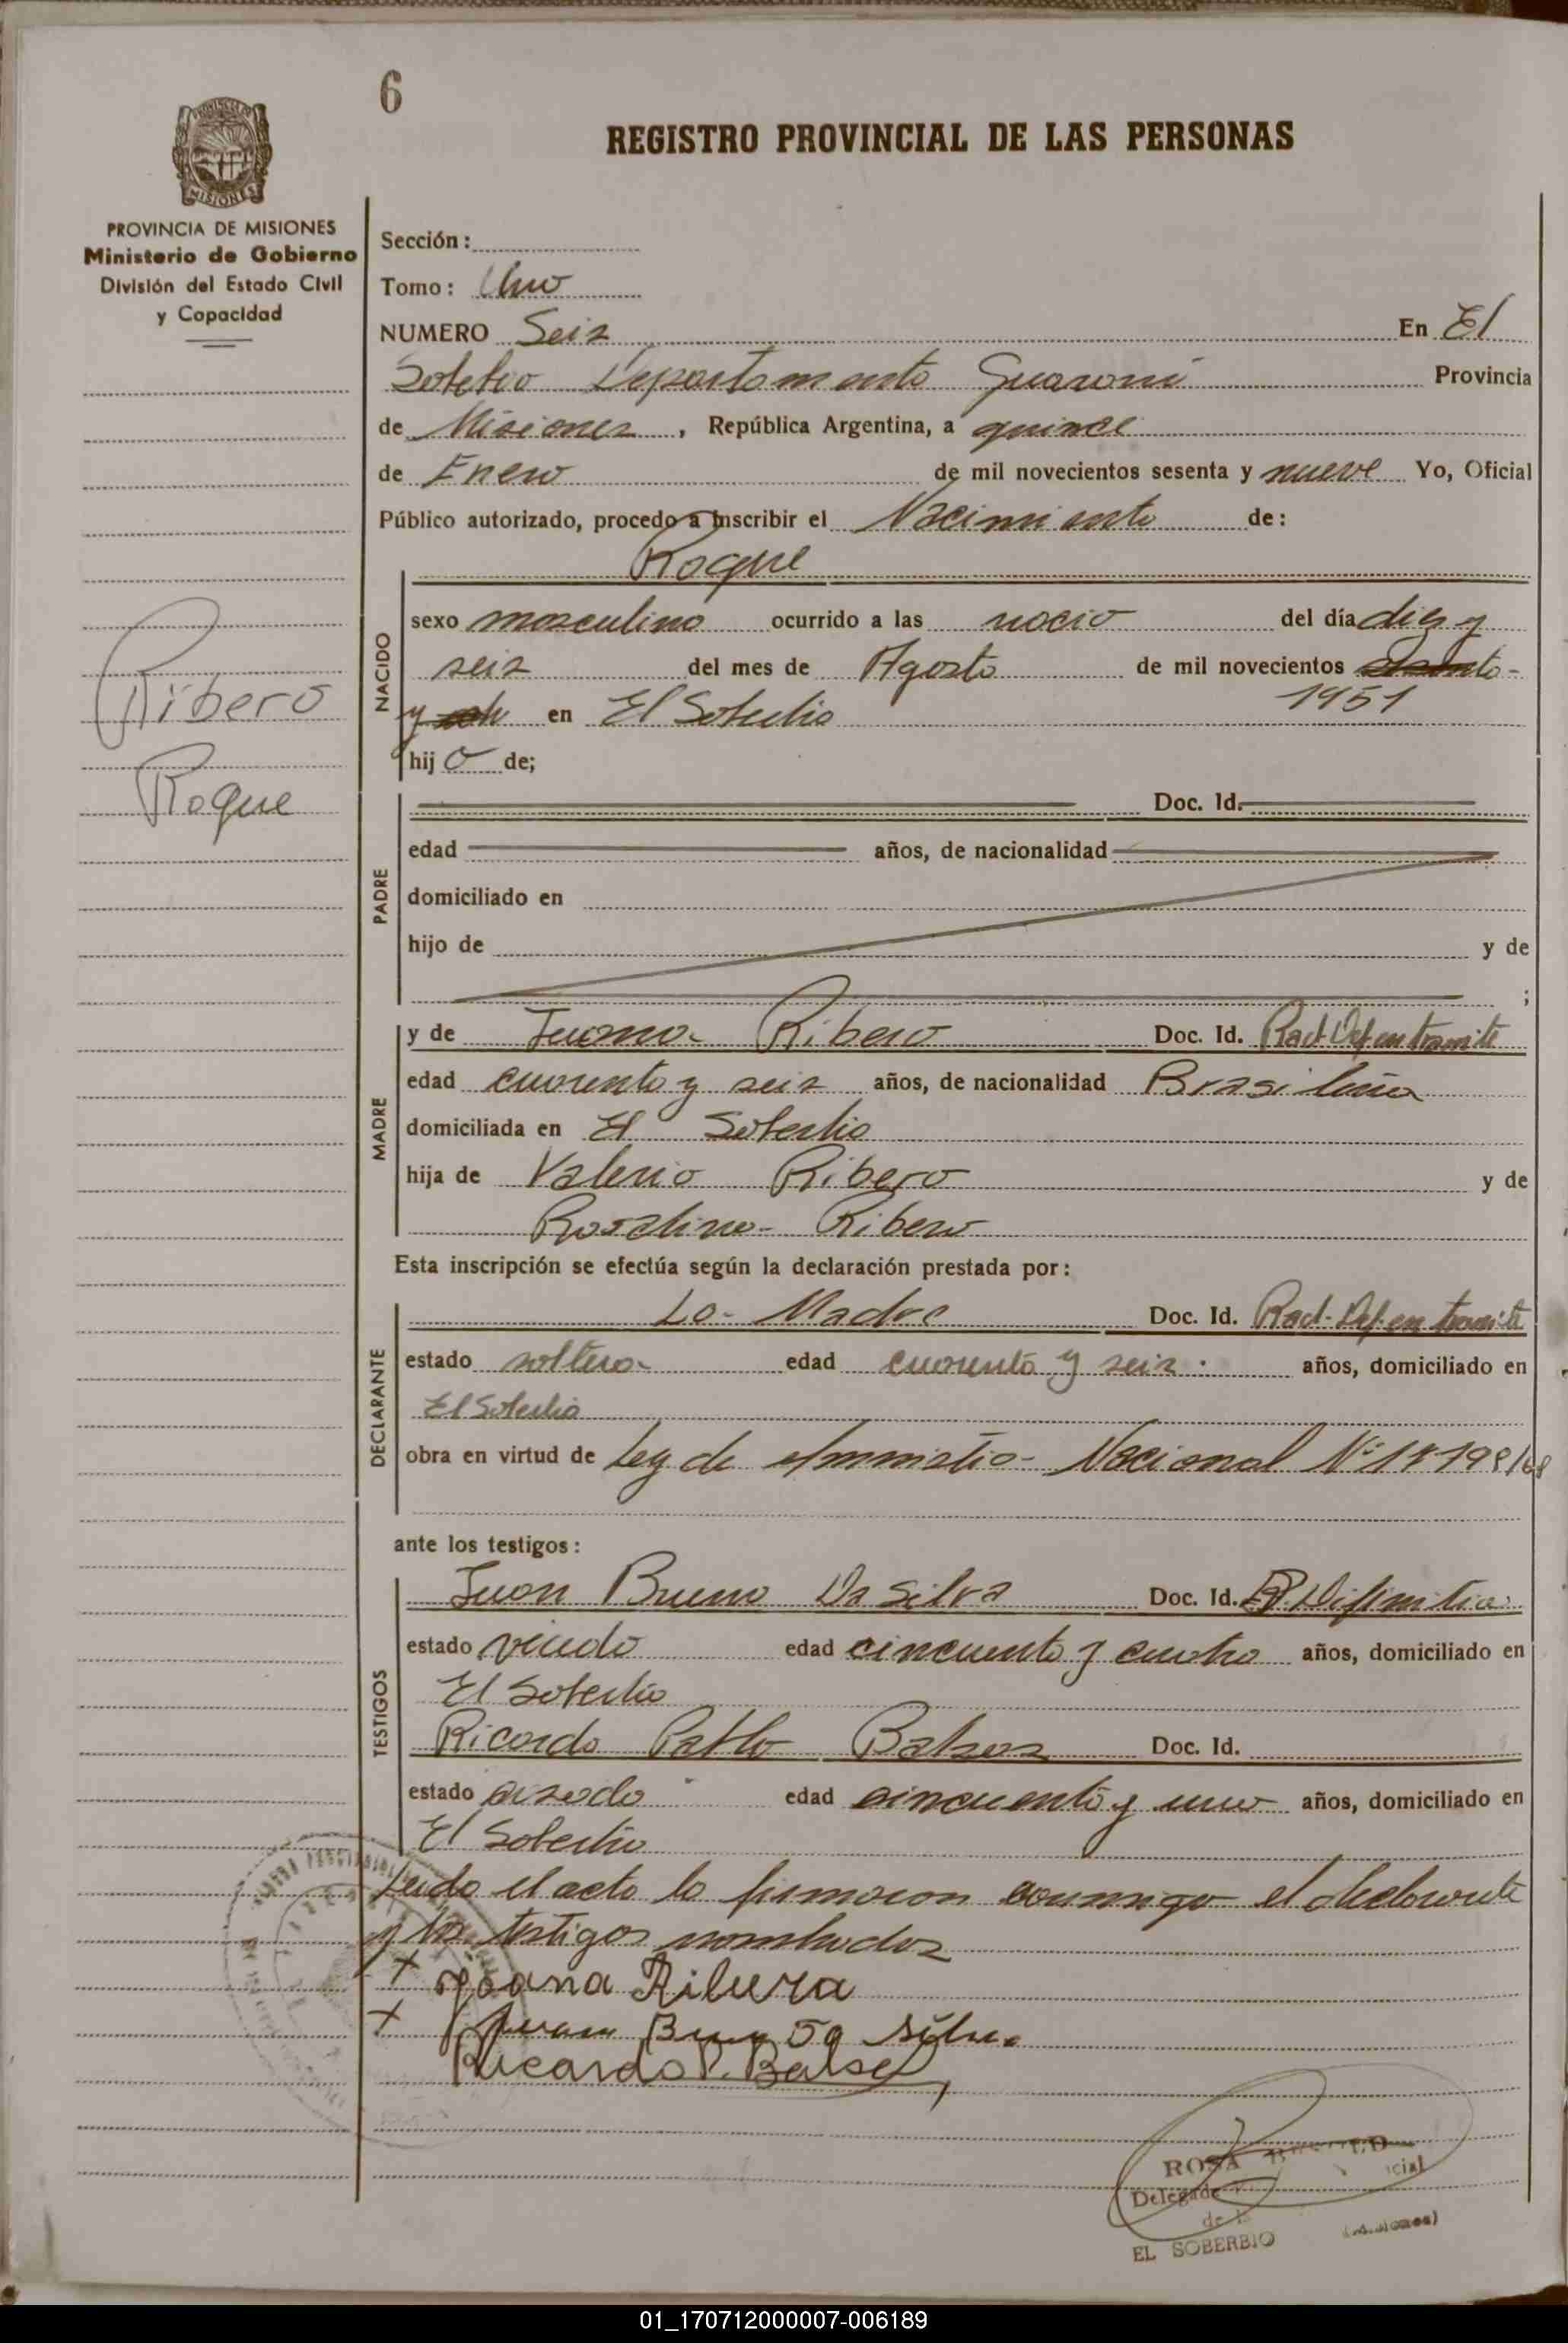 6
REGISTRO PROVINCIAL DE LAS PERSONAS
MISIONES
PROVINCIA DE MISIONES
Ministerio de Gobierno
División del Estado Civil
y Capacidad
Ribero
Roque
Sección:
Tomo: Uno
NUMERO Seis En El
Soberbio Departamento Guarani Provincia
de Misiones, República Argentina, a quince
de Enero de mil novecientos sesenta y nueve Yo, Oficial
Público autorizado, procedo a inscribir el Nacimiento de:
Roque
NACIDO
sexo masculino ocurrido a las del día diez y
seis del mes de Agosto de mil novecientos
y en El Soberbio 1951
hijo de;
PADRE
Doc. Id.
edad años, de nacionalidad
domiciliado en
hijo de y de
;
MADRE
y de Juana Ribero Doc. Id. Rad. Def en tramite
edad cuarenta y seis años, de nacionalidad Brasileña
domiciliada en El Soberbio
hija de Valerio Ribero y de
Rosalina Ribero
Esta inscripción se efectúa según la declaración prestada por:
DECLARANTE
La Madre Doc. Id. Rad. Def. en tramite
estado soltera edad cuarenta y seis años, domiciliado en
El Soberbio
obra en virtud de Ley de Amnistia Nacional Nº
ante los testigos:
TESTIGOS
Juan Bruno Da Silva Doc. Id.
estado viudo edad cincuenta y cuatro años, domiciliado en
El Soberbio
Ricardo Pablo Doc. Id.
estado casado edad cincuenta y uno años, domiciliado en
El Soberbio
Leido el acta la firmaron conmigo el declarante
y los testigos nombrados
+ Joana Ribera
+ Juan
Ricardo P.
ROSA
Delegada
EL SOBERBIO (Misiones)
01_170712000007-006189